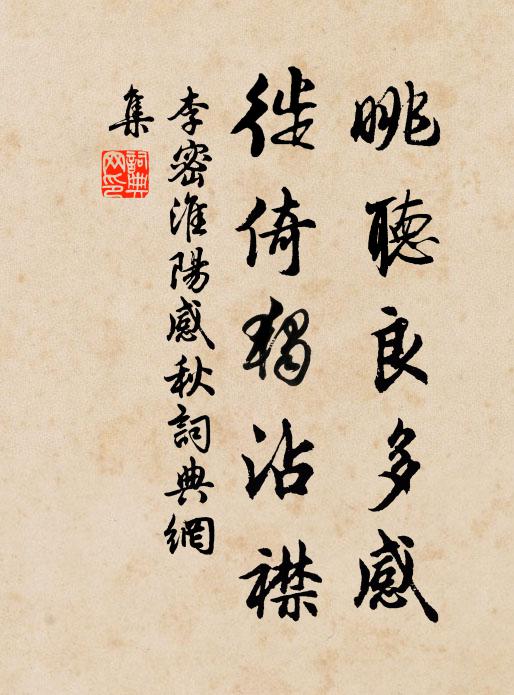 眺聽良多感
徙倚獨沾襟
李密淮陽感秋詞典網
集
詞典
网印